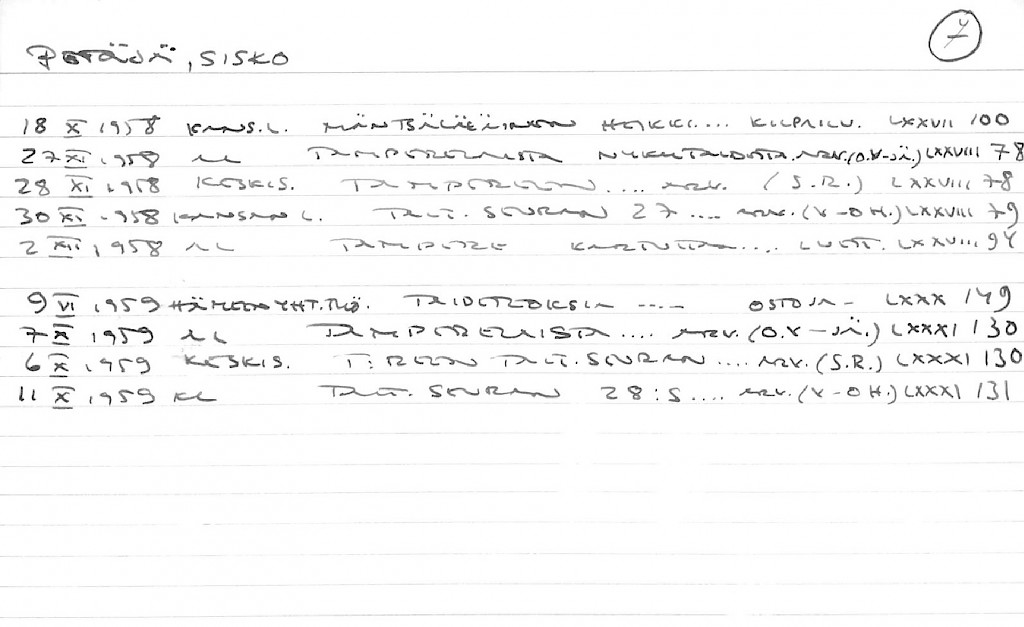 PETÄJÄ, SISKO
7
18 X 1958 KANS.L. MÄNTSÄLÄLÄINEN HEIKKI.... KILPAILU. LXXVII 100
27 XI 1958 AL TAMPERELAISTA NYKYTAIDETTA. ARV. (O.V-JÄ.) LXXVIII 78
28 XI 1958 KESKIS. TAMPEREEN .... ARV. (S.R.) LXXVIII 78
30 XI 1958 KANSAN L. TAIT. SEURAN 27 .... ARV. (V-OH.) LXXVIII 79
2 XII 1958 AL TAMPERE KARTUTTAA.... LUETT. LXXVIII 94
9 VI 1959 HÄMEEN YHT.TYÖ. TAIDETEOKSIA .... OSTOJA- LXXX 149
7 X 1959 AL TAMPERELAISTA .... ARV. (O.V-JÄ.) LXXXI 130
6 X 1959 KESKIS. T:REEN TAIT. SEURAN .... ARV. (S.R.) LXXXI 130
11 X 1959 KL TAIT. SEURAN 28:S .... ARV. (V-OH.) LXXXI 131